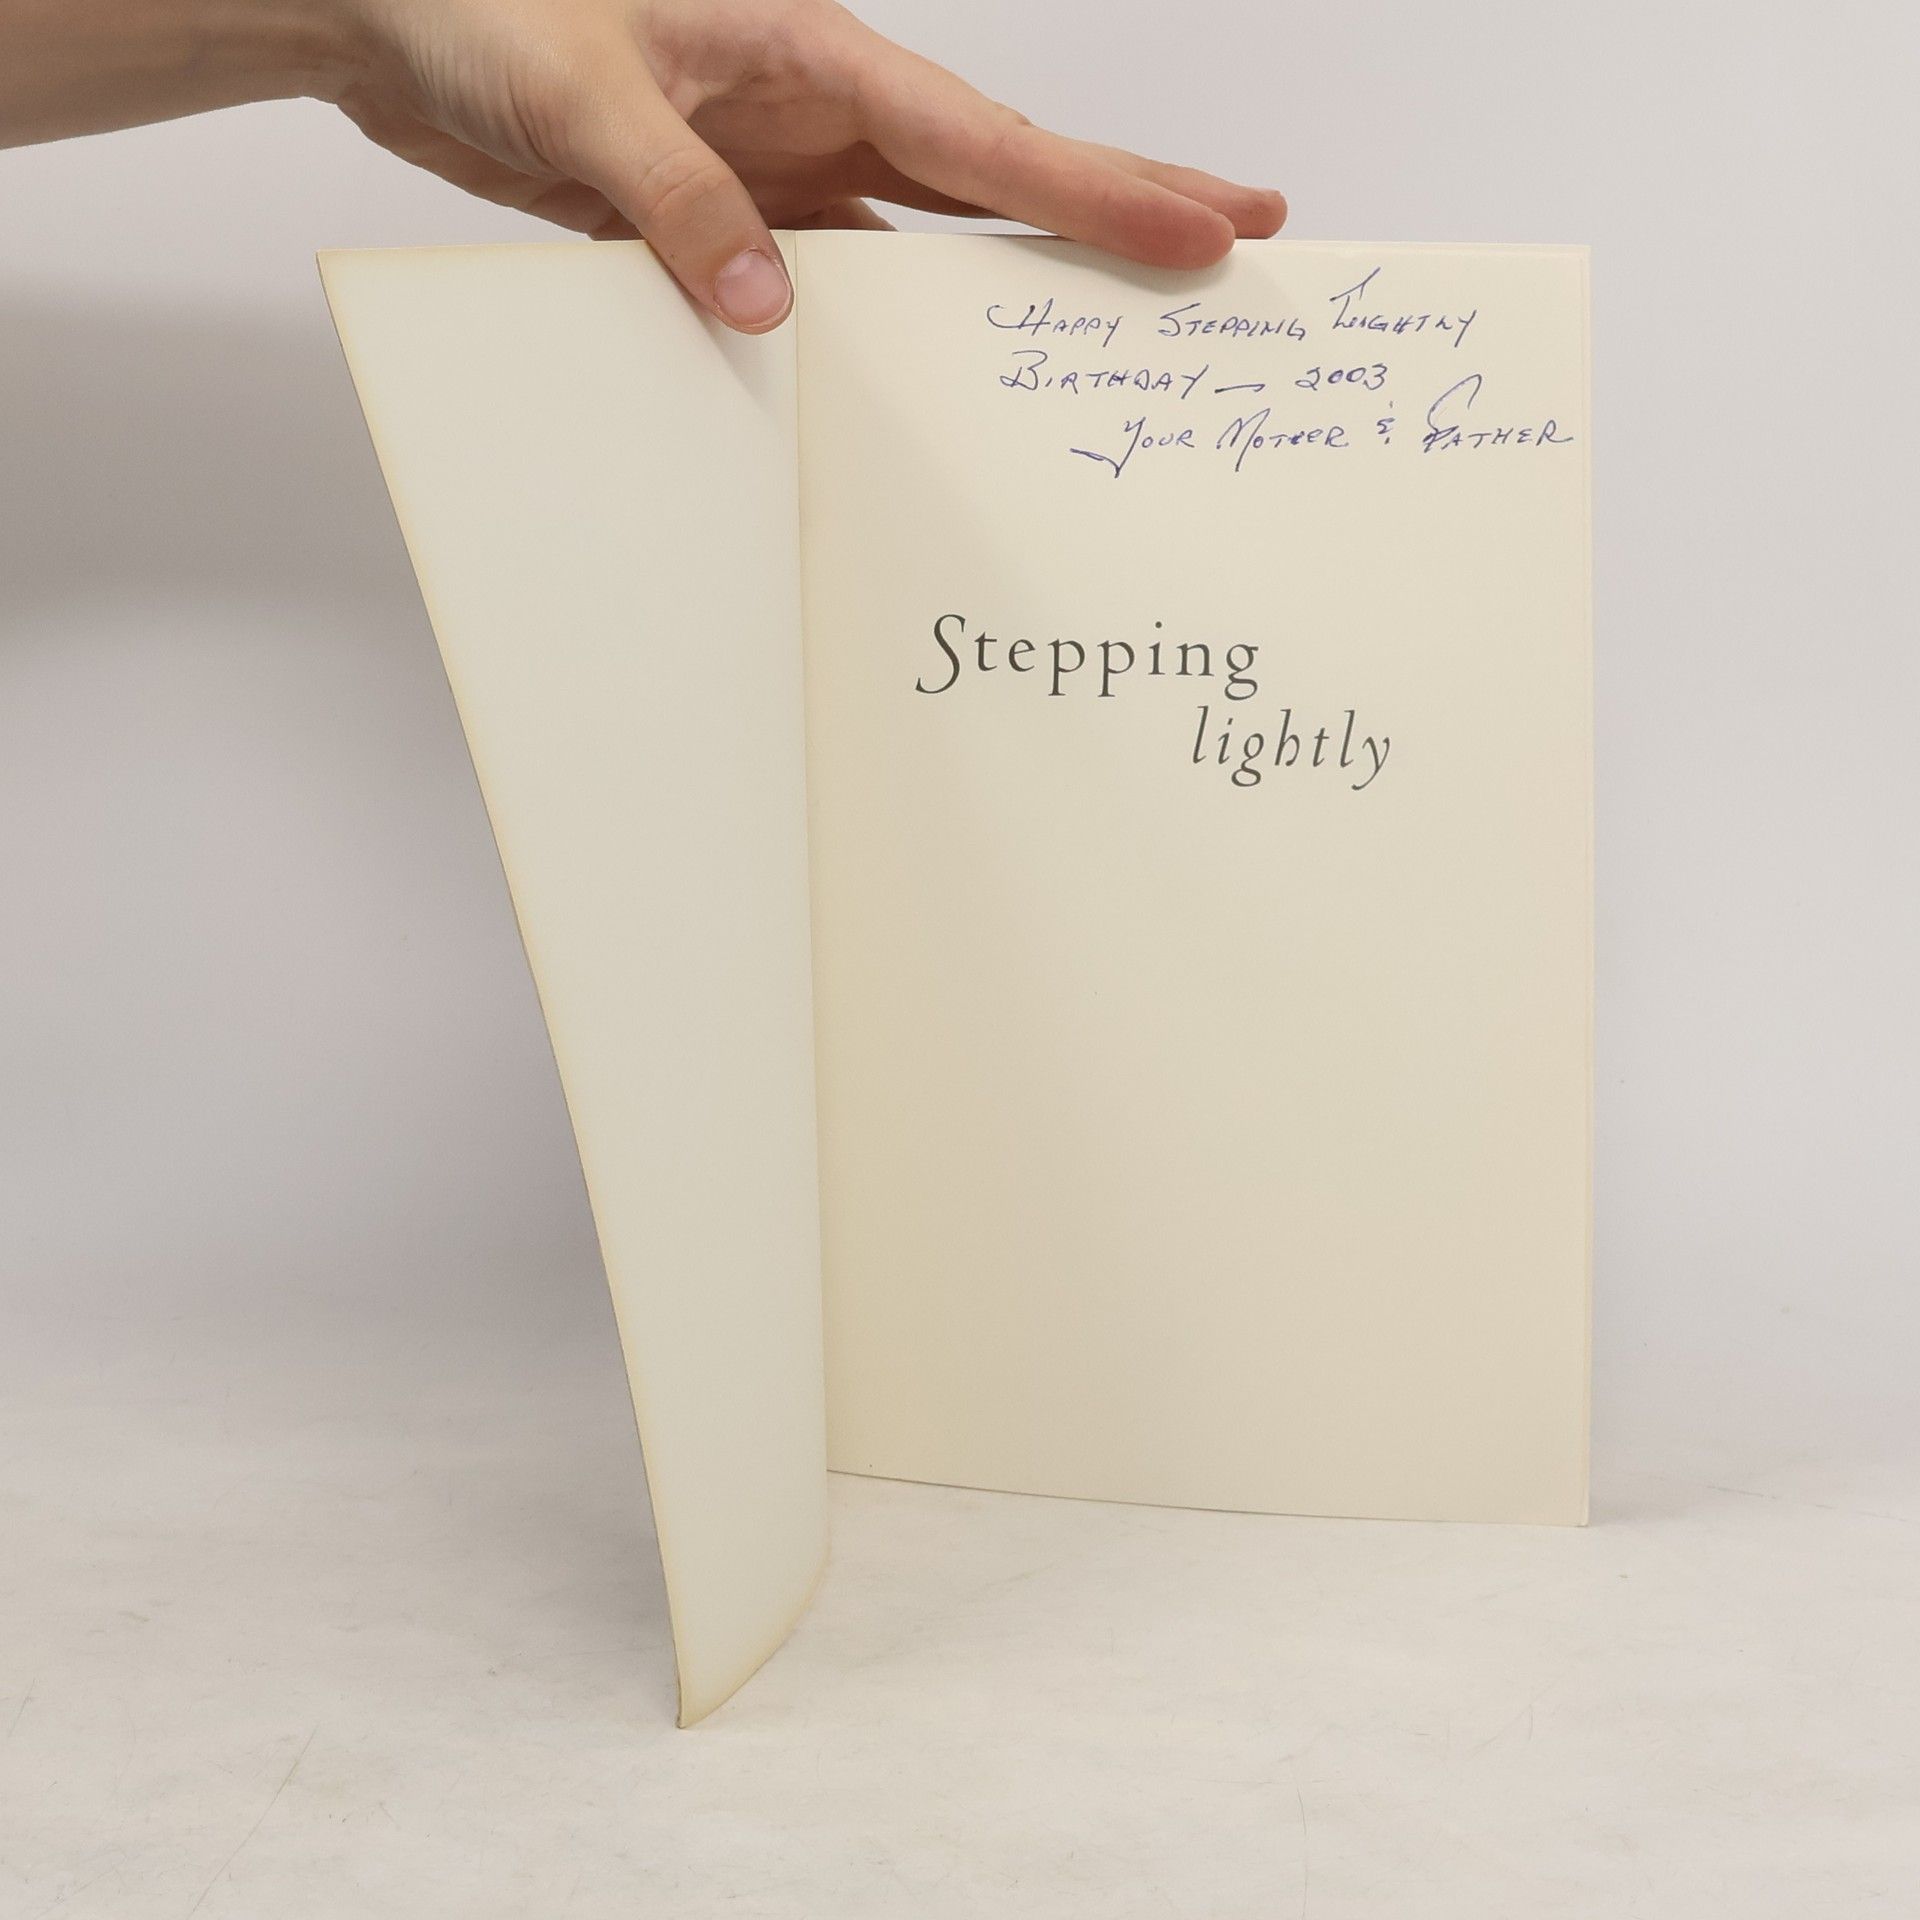 Happy Stepping Lightly
Birthday — 2003
Your Mother & Father
Stepping
lightly